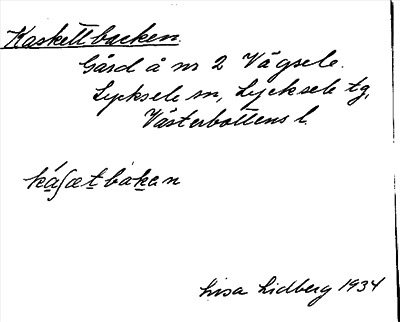 Kaskettbacken.
Gård å nr 2 Vägsele.
Lycksele sn, Lycksele tg,
Västerbottens l.
káʃætbakan
Lisa Lidberg 1934